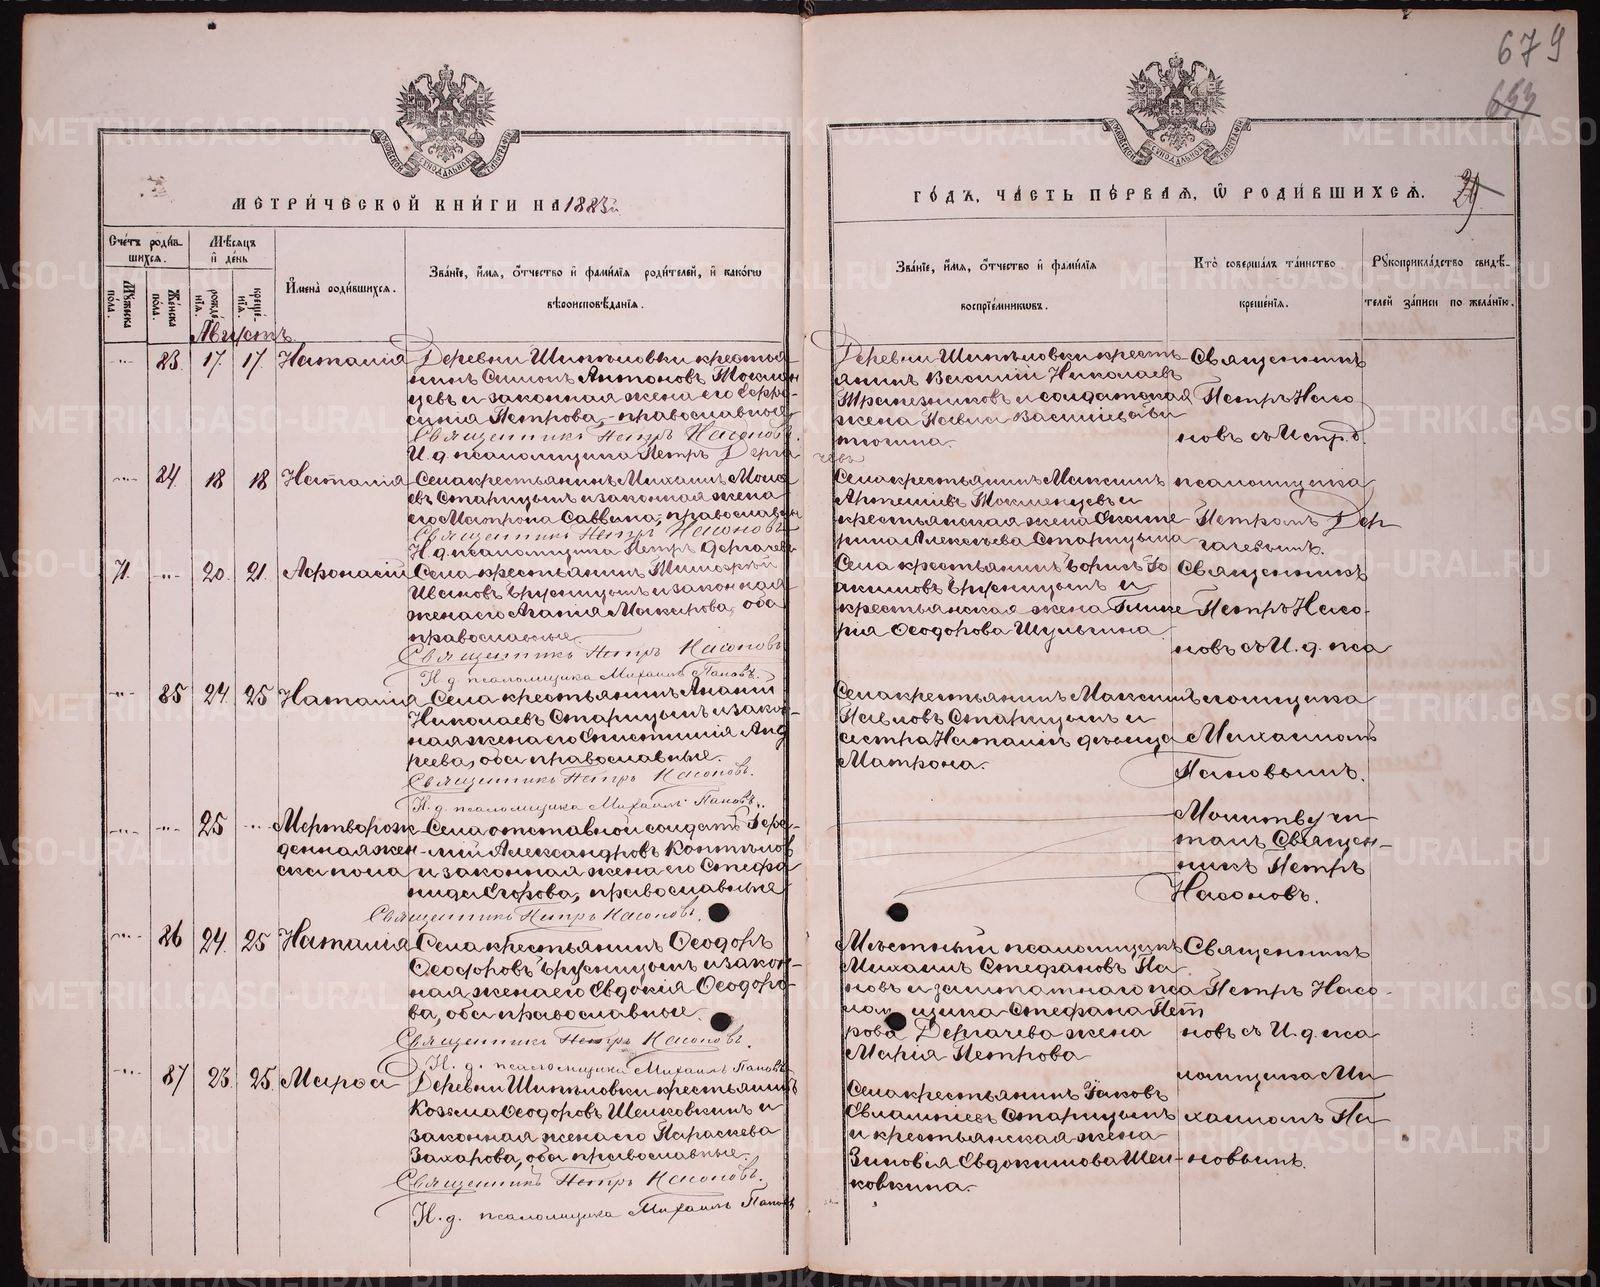 679
653
МЕТРИ́ЧЕСКОЙ КНИ́ГИ НА 1883й
ГО́ДЪ, ЧА́СТЬ ПЕ́РВАЯ, Ѿ РОДИ́ВШИХСЯ.
29
Сче́тъ роди́в-
шихся.
Мѣ́сяцъ
и де́нь
Му́жеска по́ла.
Же́нска по́ла.
рожде́нїя.
креще́нїя.
Имена̀ роди́вшихся.
Зва́нїе, и́мя, о́тчество и фами́лїя роди́телей, и како́гѡ
вѣроисповѣ́данїя.
Зва́нїе, и́мя, о́тчество и фами́лїя
воспрїе́мниковъ.
Кто̀ соверша́лъ та́инство
креще́нїя.
Рукоприкла́дство свидѣ́-
телей за́писи по жела́нїю.
Августъ
83. 17. 17. Наталія
Деревни Шипѣловки крестья-
нинъ Симонъ Антоновъ Токман
цевъ и законная жена его Евфро-
синія Петрова, - православные.
Священникъ Петръ Насоновъ.
И. д. псаломщика Петръ Дерга
чевъ
Деревни Шипѣловки кресть-
янинъ Василій Николаевъ
Трапезниковъ и солдатская
жена Павла Васильева
Священникъ
Петръ Насо
новъ съ И спр. д.
84. 18 18 Наталія
Села крестьянинъ Михаилъ Моисе
евъ Старицынъ и законная жена
его Матрона Саввина, православны
Священникъ Петръ Насоновъ
И. д. псаломщика Петръ Дергачевъ
Села крестьянинъ Максимъ
Артемьевъ Токменцевъ и
крестьянская жена Екате
рина Алексѣева Старицына
псаломщика
Петромъ Дер
гачевымъ.
71. 20. 21. Афанасій
Села крестьянинъ Тимоѳей
Ивановъ Брусницынъ и законная
жена его Агапія Макарова, оба
православные.
Священникъ Петръ Насоновъ
И. д. псаломщика Михаилъ Пановъ.
крестьянская жена Глике
рія Ѳеодорова Шульгина
Священникъ
Петръ Насо-
новъ съ И. д. пса
85 24. 25 Наталія
Села крестьянинъ Ананій
Николаевъ Старицынъ и закон-
ная жена его Епистимія Анд
реева, оба православные.
Священникъ Петръ Насоновъ.
И. д. псаломщика Михаилъ Пановъ.
Села крестьянинъ Максимъ
Павловъ Старицынъ и
сестра Наталіи дѣвица
Матрона.
ломщика
Михаиломъ
Пановымъ.
25 Мертворож
денная жен
ска пола
Села отставной солдатъ Гера-
Александровъ Коптѣлов
и законная жена его Стефа
нида Егорова, православные
Священникъ Петръ Насоновъ.
Молитву чи
талъ Священ-
никъ Петръ
Насоновъ.
86 24. 25 Наталія
Села крестьянинъ Ѳеодоръ
Ѳеодоровъ Брусницынъ и закон-
ная жена его Евдокія Ѳеодоро-
ва, оба православные.
Священникъ Петръ Насоновъ.
И. д. псаломщика Михаилъ Пановъ
Мѣстный псаломщикъ
Михаилъ Стефановъ Па
новъ и заштатнаго пса
ломщика Стефана Пет
рова Дергачева жена
Марія Петрова
Священникъ
Петръ Насо-
новъ съ И. д. пса
87 23. 25. Марѳа
Деревни Шипѣловки крестьянинъ
Козьма Ѳеодоровъ Шелковкинъ и
законная жена его Параскева
Захарова, оба православные.
Священникъ Петръ Насоновъ.
И. д. псаломщика Михаилъ Пановъ
Села крестьянинъ Іаковъ
Евлампіевъ Старицынъ
и крестьянская жена
Зиновія Евдокимова Шел-
ковкина.
ломщика Ми
хаиломъ Па-
новымъ.